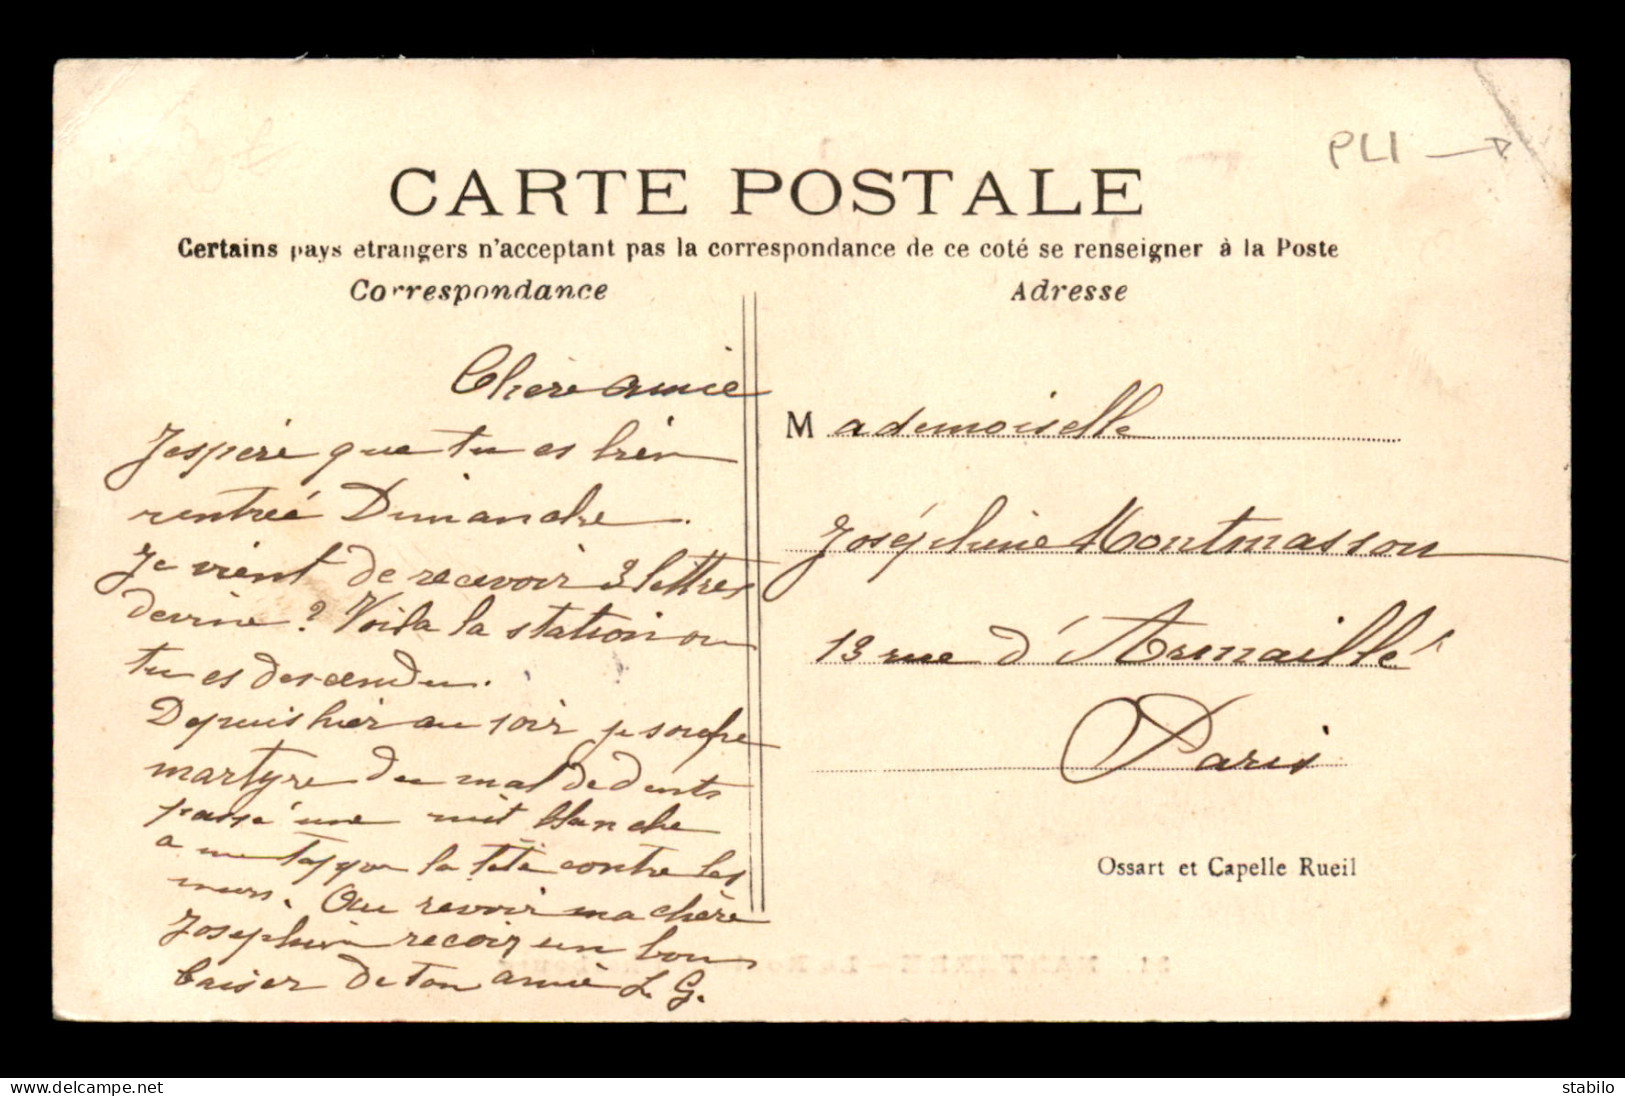 PLI
CARTE POSTALE
Certains pays etrangers n'acceptant pas la correspondance de ce coté se renseigner à la Poste
Correspondance
Adresse
Chère amie
J'espère que tu es bien
rentrée Dimanche.
Je vient de recevoir 3 lettres
devine ? Voila la station ou
tu es descendu.
Depuis hier au soir je soufre
martyre du mal de dents
passé une nuit blanche
a me taper la tête contre les
murs. Au revoir ma chère
Joséphine recoir un bon
baiser de ton amie L. G.
Mademoiselle
Joséphine Montmasson
13 rue d'Armaillé
Paris
Ossart et Capelle Rueil
delcampe.net
stabilo